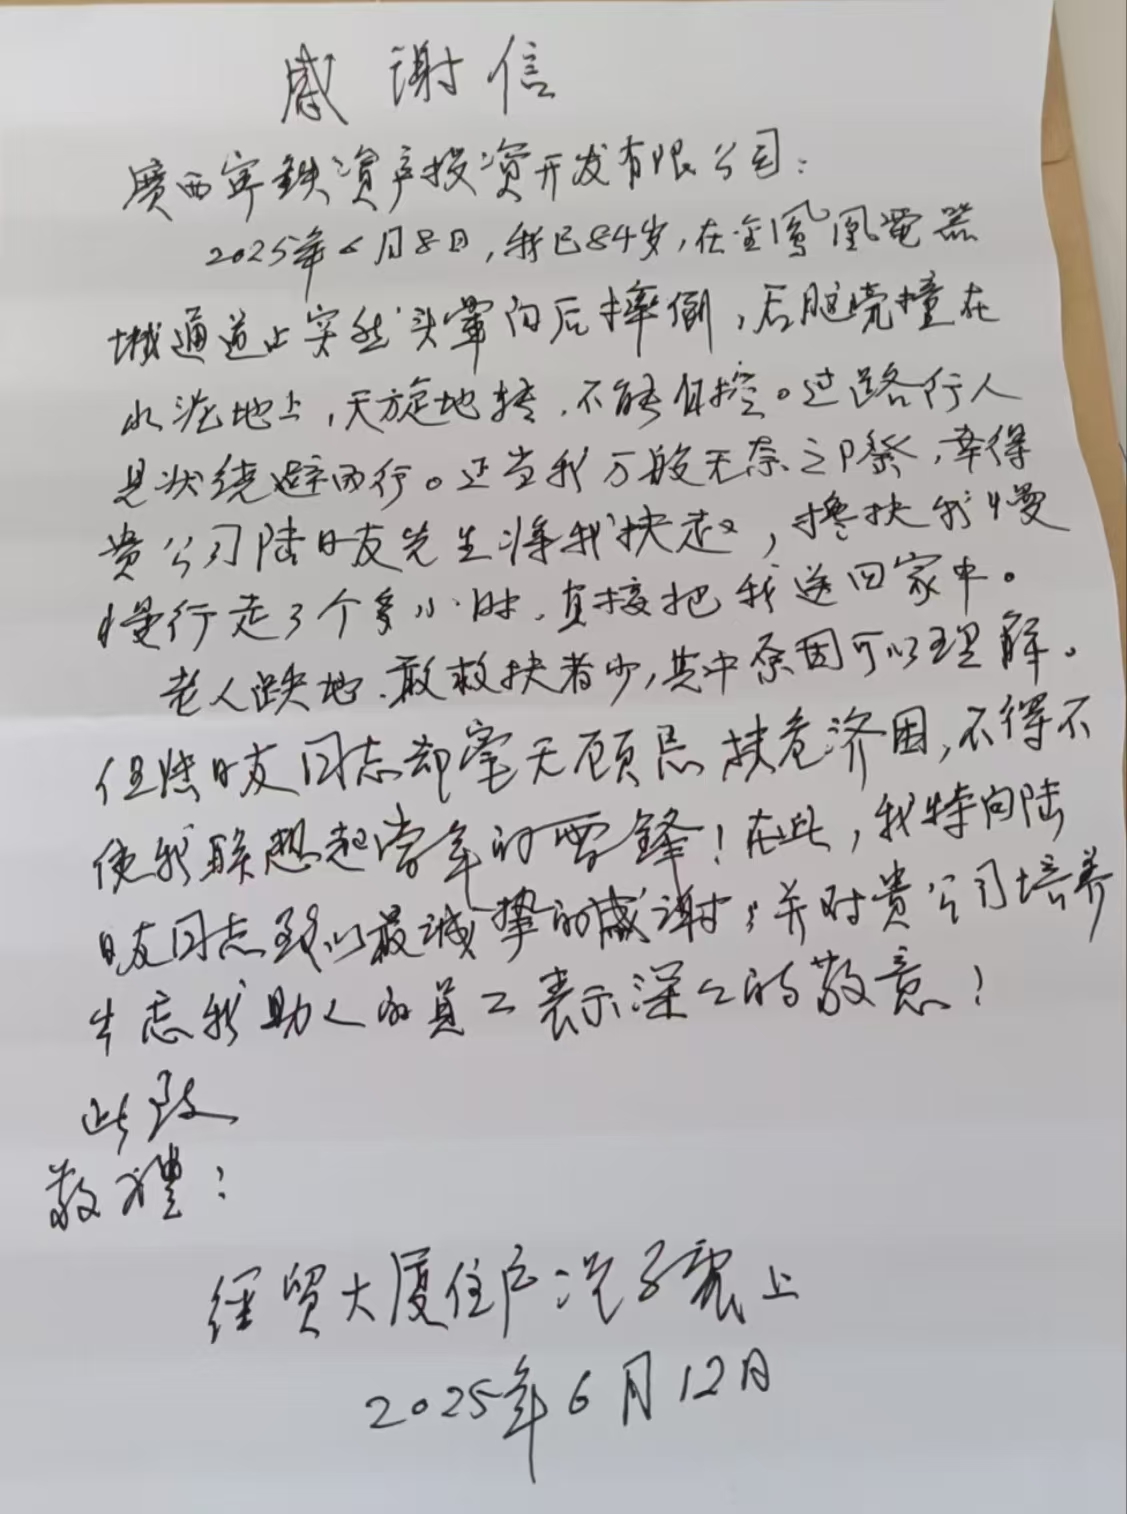 感谢信
廣西宁鉄资产投资开发有限公司：
2025年6月8日，我已84岁，在金鳳凰電器
城通道上突然头暈向后摔倒，后脑壳撞在
水泥地上，天旋地转，不能自控。过路行人
见状绕避而行。正当我万般无奈之际，幸得
贵公司陆日友先生将我扶起，搀扶我慢
慢行走了个多小时，直接把我送回家中。
老人跌地，敢救扶者少，其中原因可以理解。
但陆日友同志却毫无顾忌扶危济困，不得不
使我联想起当年的雷锋！在此，我特向陆
日友同志致以最诚挚的感谢；并对贵公司培养
出忘我助人的員工表示深深的敬意！
此致
敬禮！
经贸大厦住户冼子上
2025年6月12日